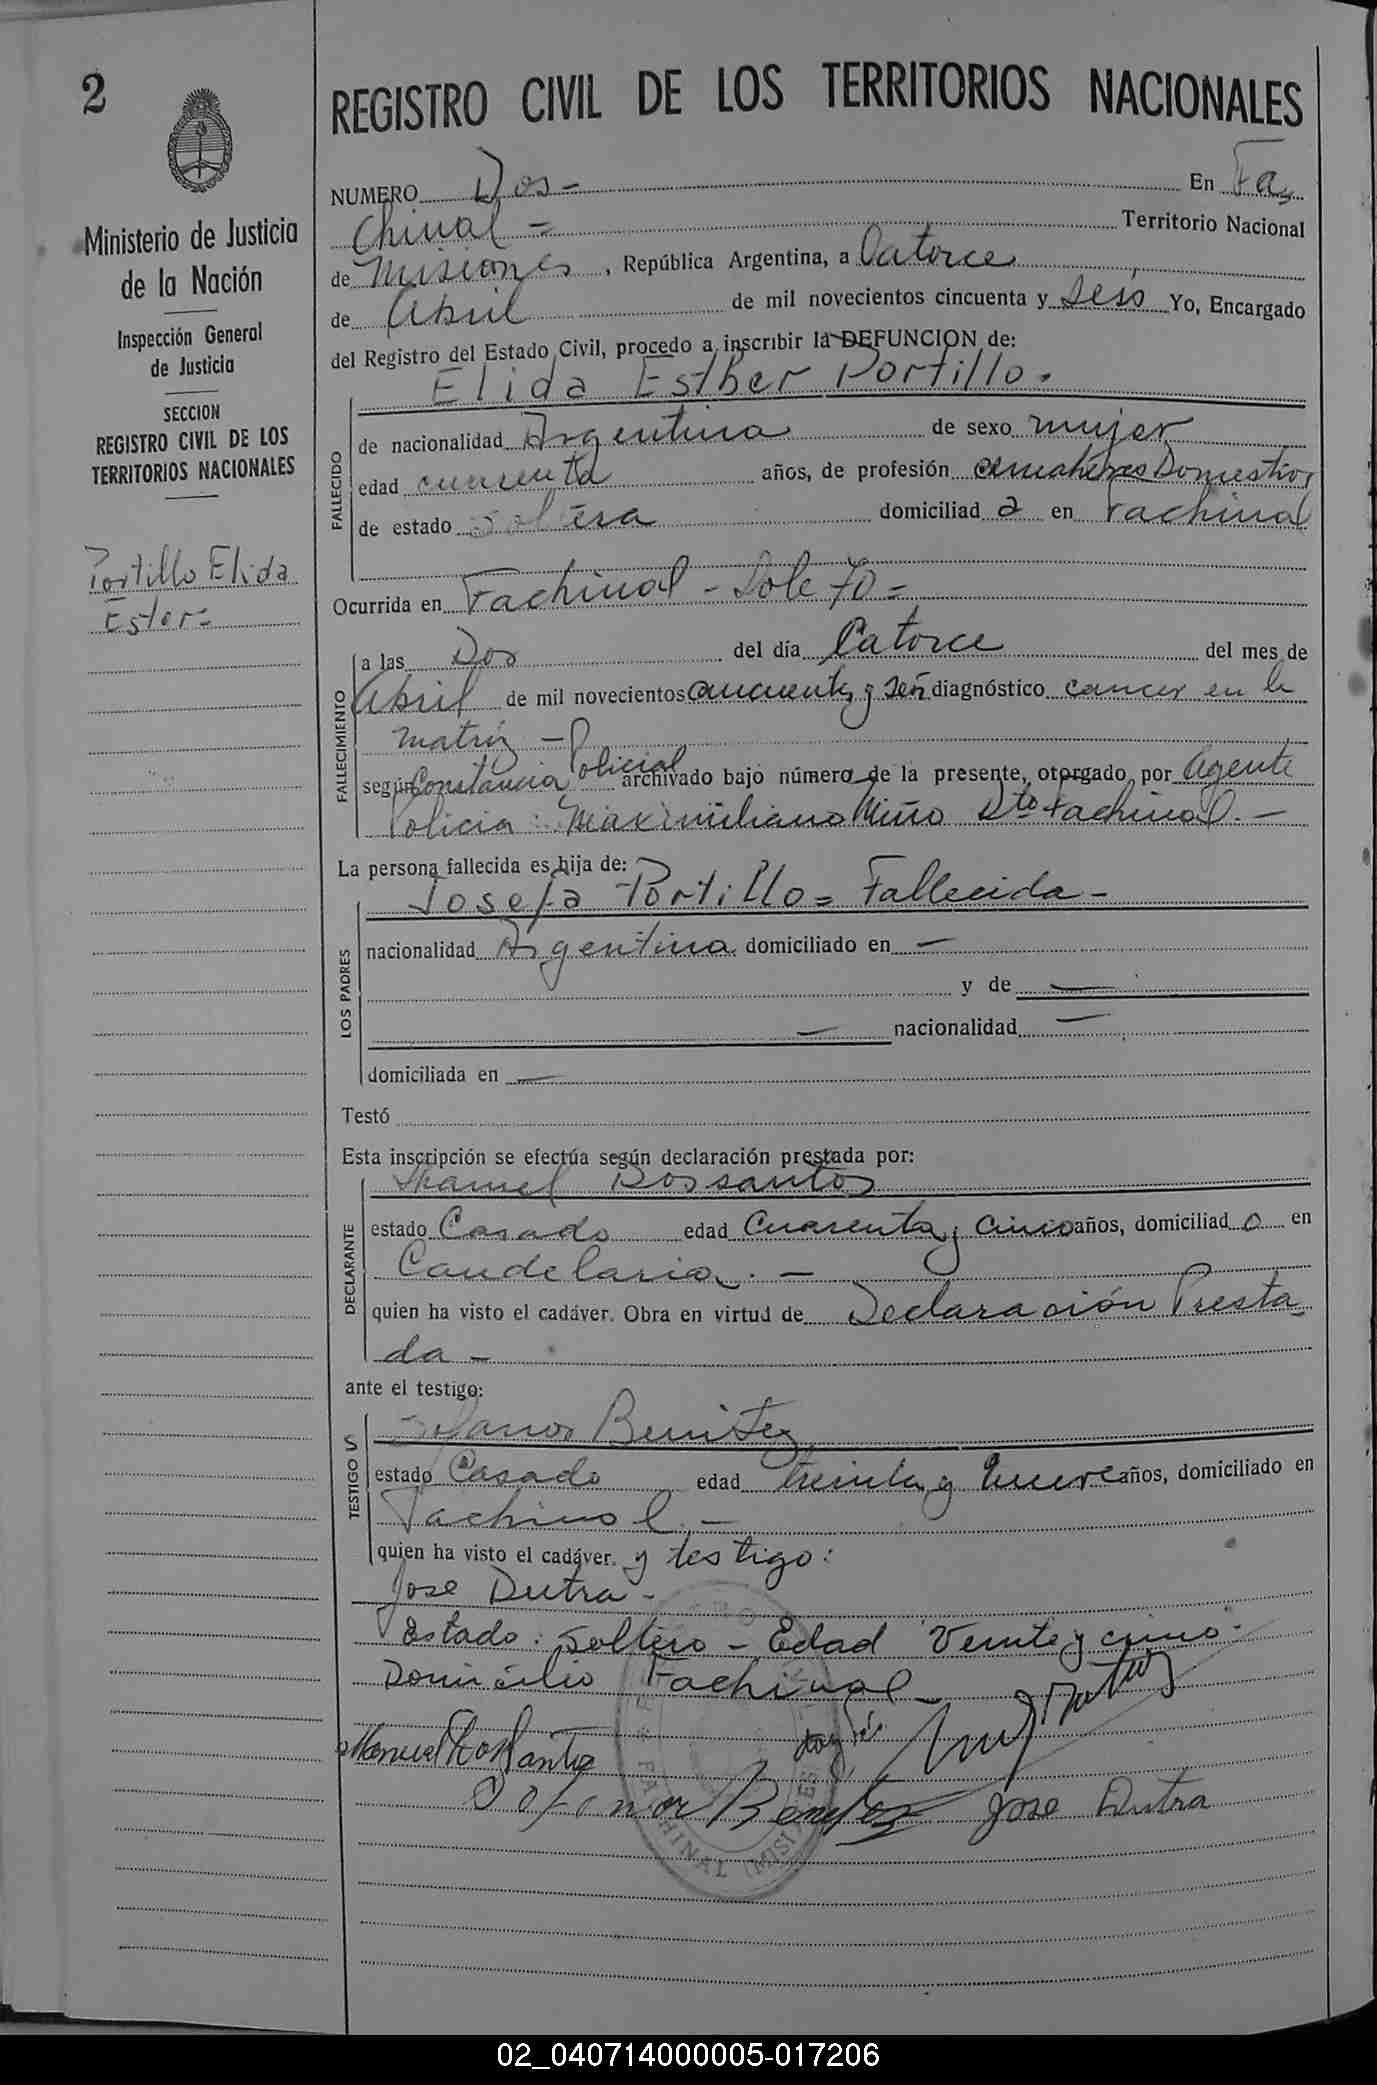 2
REGISTRO CIVIL DE LOS TERRITORIOS NACIONALES
Ministerio de Justicia
de la Nación
Inspección General
de Justicia
SECCION
REGISTRO CIVIL DE LOS
TERRITORIOS NACIONALES
Portillo Elida
Ester =
NUMERO Dos - En Fa,
chinal = Territorio Nacional
de Misiones, República Argentina, a Catorce
de Abril de mil novecientos cincuenta y Seis Yo, Encargado
del Registro del Estado Civil, procedo a inscribir la DEFUNCION de:
Elida Esther Portillo.
FALLECIDO
de nacionalidad Argentina de sexo mujer
edad años, de profesión Domestios
de estado Soltera domiciliad a en Fachinal
Ocurrida en Fachinal - Lote 70 =
FALLECIMIENTO
a las Dos del día Catorce del mes de
Abril de mil novecientos cincuenta y Seis diagnóstico cancer en la
matriz -
según Constancia Policial archivado bajo número de la presente, otorgado por Agente
Policia: Maximiliano Miño Dto Fachinal. -
La persona fallecida es hija de:
Josefa Portillo = Fallecida -
LOS PADRES
nacionalidad Argentina domiciliado en —
y de —
— nacionalidad —
domiciliada en —
Testó
Esta inscripción se efectúa según declaración prestada por:
DECLARANTE
Manuel Dossantos
estado Casado edad Cuarenta y Cinco años, domiciliad o en
Candelaria. -
quien ha visto el cadáver. Obra en virtud de Declaración Presta
da -
ante el testigo:
TESTIGO S
Benitez
estado Casado edad treinta y nueve años, domiciliado en
Fachinal. -
quien ha visto el cadáver. y testigo:
Jose Dutra -
Estado: Soltero - Edad Veinte y cinco -
Domicilio Fachinal -
Manuel Dos Santos
Benitez Jose Dutra
FACHINAL (MISIONES)
02_040714000005-017206